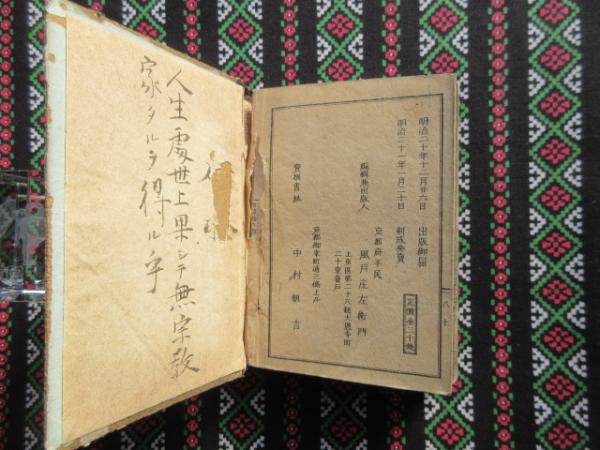 明治二十年十二月廿六日 出版御届
明治二十一年一月二十日 刻成発賣
定價金二十錢
編輯兼出版人
京都府平民
風月庄左衛門
上京區第二十八組大恩寺町
二十壹番戸
賣捌書林
京都御幸町通三條上ル
中村
吉
人生處世上果シテ無宗教
家タルヲ得ル乎